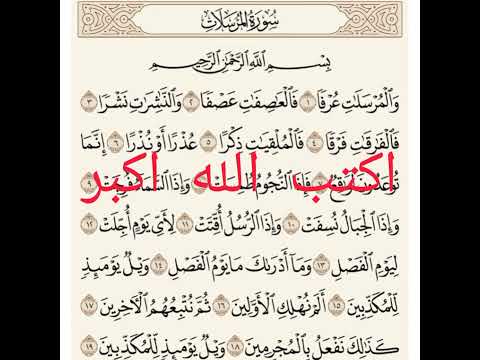 سُورَةُ المُرْسَلَات
بِسْمِ اللَّهِ الرَّحْمَٰنِ الرَّحِيمِ
وَالْمُرْسَلَاتِ عُرْفًا ١ فَالْعَاصِفَاتِ عَصْفًا ٢ وَالنَّاشِرَاتِ نَشْرًا ٣
فَالْفَارِقَاتِ فَرْقًا ٤ فَالْمُلْقِيَاتِ ذِكْرًا ٥ عُذْرًا أَوْ نُذْرًا ٦ إِنَّمَا
تُوعَدُونَ لَوَاقِعٌ ٧ فَإِذَا النُّجُومُ طُمِسَتْ ٨ وَإِذَا السَّمَاءُ فُرِجَتْ ٩
اكتب الله اكبر
وَإِذَا الْجِبَالُ نُسِفَتْ ١٠ وَإِذَا الرُّسُلُ أُقِّتَتْ ١١ لِأَيِّ يَوْمٍ أُجِّلَتْ ١٢
لِيَوْمِ الْفَصْلِ ١٣ وَمَا أَدْرَىٰكَ مَا يَوْمُ الْفَصْلِ ١٤ وَيْلٌ يَوْمَئِذٍ
لِّلْمُكَذِّبِينَ ١٥ أَلَمْ نُهْلِكِ الْأَوَّلِينَ ١٦ ثُمَّ نُتْبِعُهُمُ الْآخِرِينَ ١٧
كَذَٰلِكَ نَفْعَلُ بِالْمُجْرِمِينَ ١٨ وَيْلٌ يَوْمَئِذٍ لِّلْمُكَذِّبِينَ ١٩